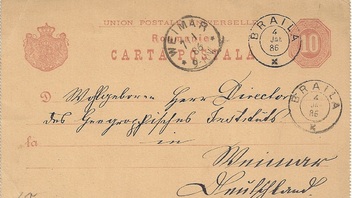 UNION POSTALE UNIVERSELLE
Romania
CARTA POSTALA
10
WEIMAR
86
BRAILA
4
JAN
86
D. Wohlgeboren Herr Director
BRAILA
4
86
des Geographischen Instituts
in
la
Weimar
Deutschland.